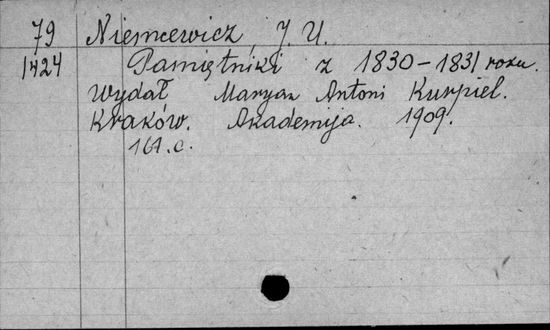 79 Niemcewicz, J. U.
1424 Pamiętniki z 1830-1831 roku.
Wydał Maryan Antoni Kurpiel.
Kraków. Akademija. 1909.
161. c.